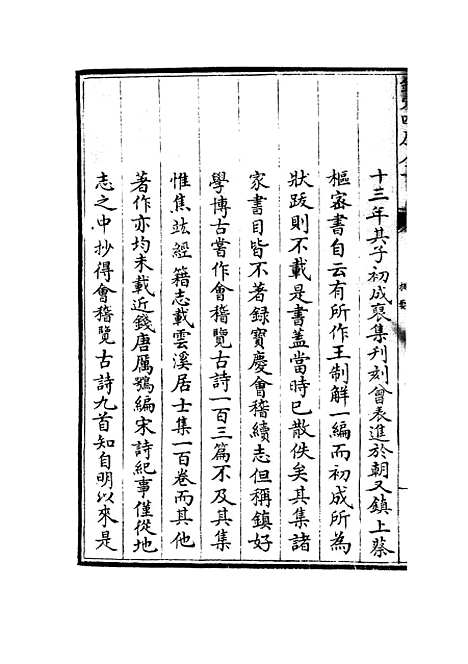 十三年其子初成裒集刊刻嘗表進於朝又鎮上蔡
樞密書自云有所作王制解一編而初成所為
狀跋則不載是書蓋當時已散佚矣其集諸
家書目皆不著録寳慶會稽續志但稱鎮好
學博古嘗作會稽覽古詩一百三篇不及其集
惟焦竑經籍志載雲溪居士集一百卷而其他
著作亦均未載近錢唐厲鶚編宋詩紀事僅從地
志之中抄得會稽覽古詩九首知自明以來是
提要